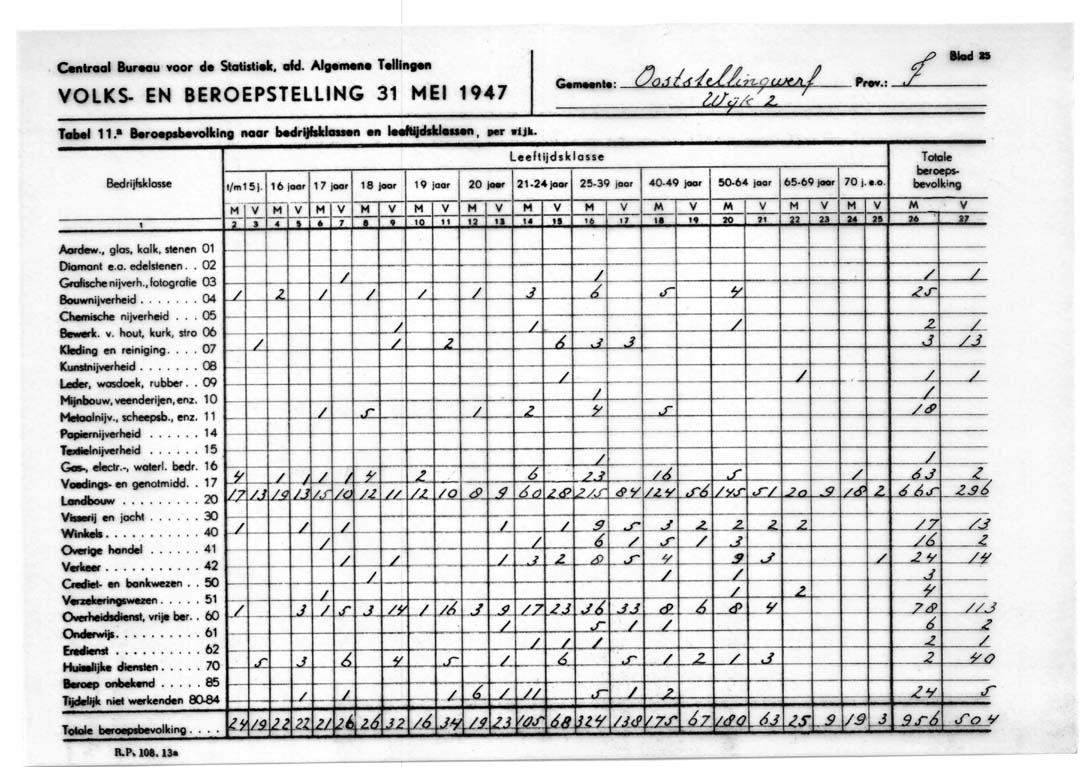 Blad 25
Centraal Bureau voor de Statistiek, afd. Algemene Tellingen
Gemeente: Ooststellingwerf Prov.: F
VOLKS- EN BEROEPSTELLING 31 MEI 1947
Wijk 2
Tabel 11.a Beroepsbevolking naar bedrijfsklassen en leeftijdsklassen, per wijk.
Bedrijfsklasse Leeftijdsklasse Totale beroeps-bevolking
t/m 15 j. 16 jaar 17 jaar 18 jaar 19 jaar 20 jaar 21-24 jaar 25-39 jaar 40-49 jaar 50-64 jaar 65-69 jaar 70 j. e.o.
M V M V M V M V M V M V M V M V M V M V M V M V M V
1 2 3 4 5 6 7 8 9 10 11 12 13 14 15 16 17 18 19 20 21 22 23 24 25 26 27
Aardew., glas, kalk, stenen 01
Diamant e.a. edelstenen . . 02
Grafische nijverh., fotografie 03 1 1 1 1
Bouwnijverheid . . . . . . . 04 1 2 1 1 1 1 3 6 5 4 25
Chemische nijverheid . . . 05
Bewerk. v. hout, kurk, stro 06 1 1 1 2 1
Kleding en reiniging. . . . 07 1 1 2 6 3 3 3 13
Kunstnijverheid . . . . . . . 08
Leder, wasdoek, rubber. . 09 1 1 1 1
Mijnbouw, veenderijen, enz. 10 1 1
Metaalnijv., scheepsb., enz. 11 1 5 1 2 4 5 18
Papiernijverheid . . . . . . 14
Textielnijverheid . . . . . . 15
Gas-, electr.-, waterl. bedr. 16 1 1
Voedings- en genotmidd. . 17 4 1 1 1 4 2 6 23 16 5 1 63 2
Landbouw . . . . . . . . . 20 17 13 19 13 15 10 12 11 12 10 8 9 60 28 215 84 124 56 145 51 20 9 18 2 665 296
Visserij en jacht . . . . . . 30
Winkels . . . . . . . . . . 40 1 1 1 1 1 9 5 3 2 2 2 2 17 13
Overige handel . . . . . . 41 1 1 6 1 5 1 3 16 2
Verkeer . . . . . . . . . . 42 1 1 1 3 2 8 5 4 9 3 1 24 14
Crediet- en bankwezen . . 50 1 1 1 3
Verzekeringswezen. . . . . 51 1 1 2 4
Overheidsdienst, vrije ber. . 60 1 3 1 5 3 14 1 16 3 9 17 23 36 33 8 6 8 4 78 113
Onderwijs. . . . . . . . . . 61 1 5 1 1 6 2
Eredienst . . . . . . . . . 62 1 1 1 2 1
Huiselijke diensten . . . . . 70 5 3 6 4 5 1 6 5 1 2 1 3 2 40
Beroep onbekend . . . . . 85
Tijdelijk niet werkenden 80-84 1 1 1 6 1 11 5 1 2 24 5
Totale beroepsbevolking . . . . 24 19 22 22 21 26 26 32 16 34 19 23 105 68 324 138 175 67 180 63 25 9 19 3 956 504
R.P. 108. 13a